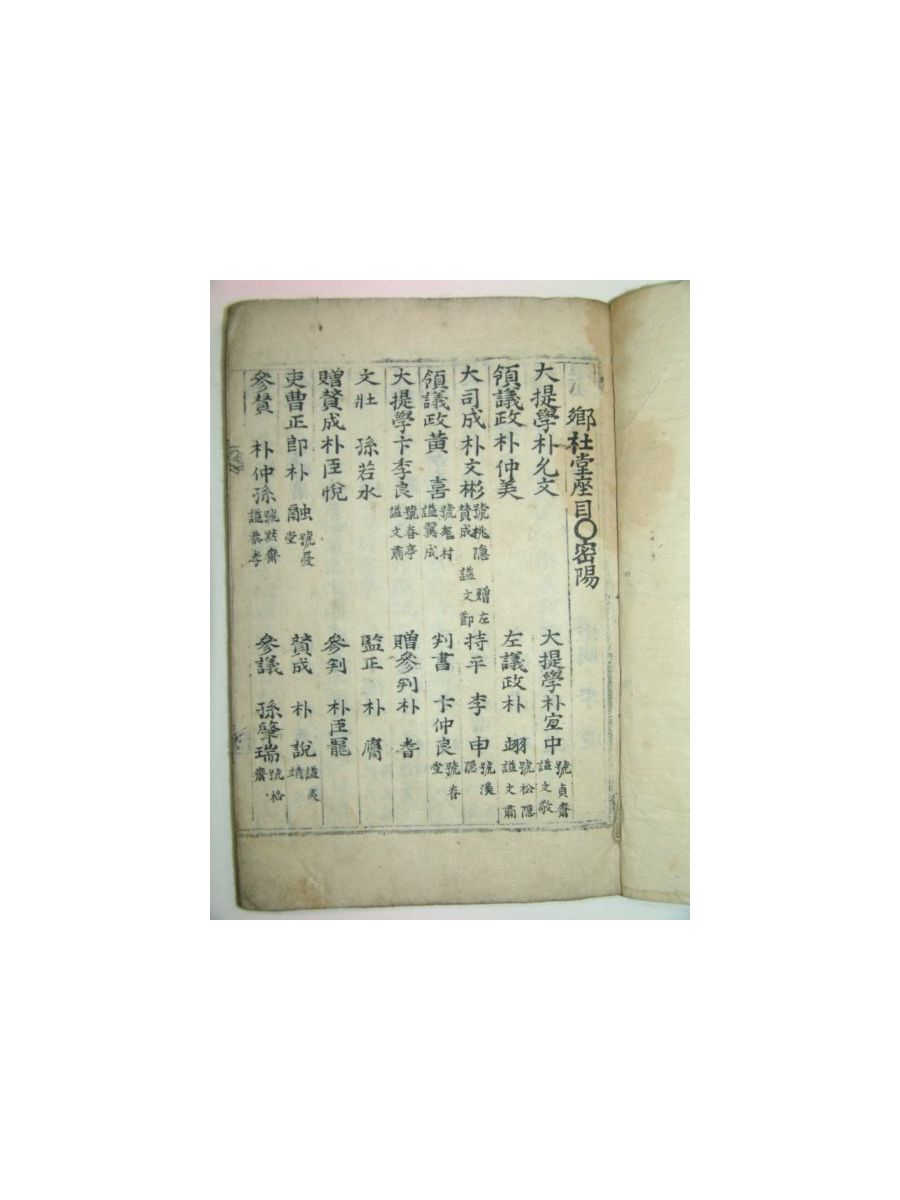 鄉社堂座目○密陽
大提學朴允文 大提學朴宜中 號貞齋 謚文敬
領議政朴仲美 左議政朴 翊 號松隠 謚文肅
大司成朴文彬 號桃隠 贈左贊成 謚文節 持平 李 申 號溪隠
領議政黄 喜 號厖村 謚翼成 判書 卞仲良 號春堂
大提學卞季良 號春亭 謚文肅 贈參判朴 耆
文壯 孫若水 監正 朴 膺
贈贊成朴臣悅 參判 朴臣
吏曹正郎朴 融 號憂堂 贊成 朴 說 謚夷靖
參贊 朴仲孫 號默齋 謚恭孝 參議 孫肇瑞 號格齋